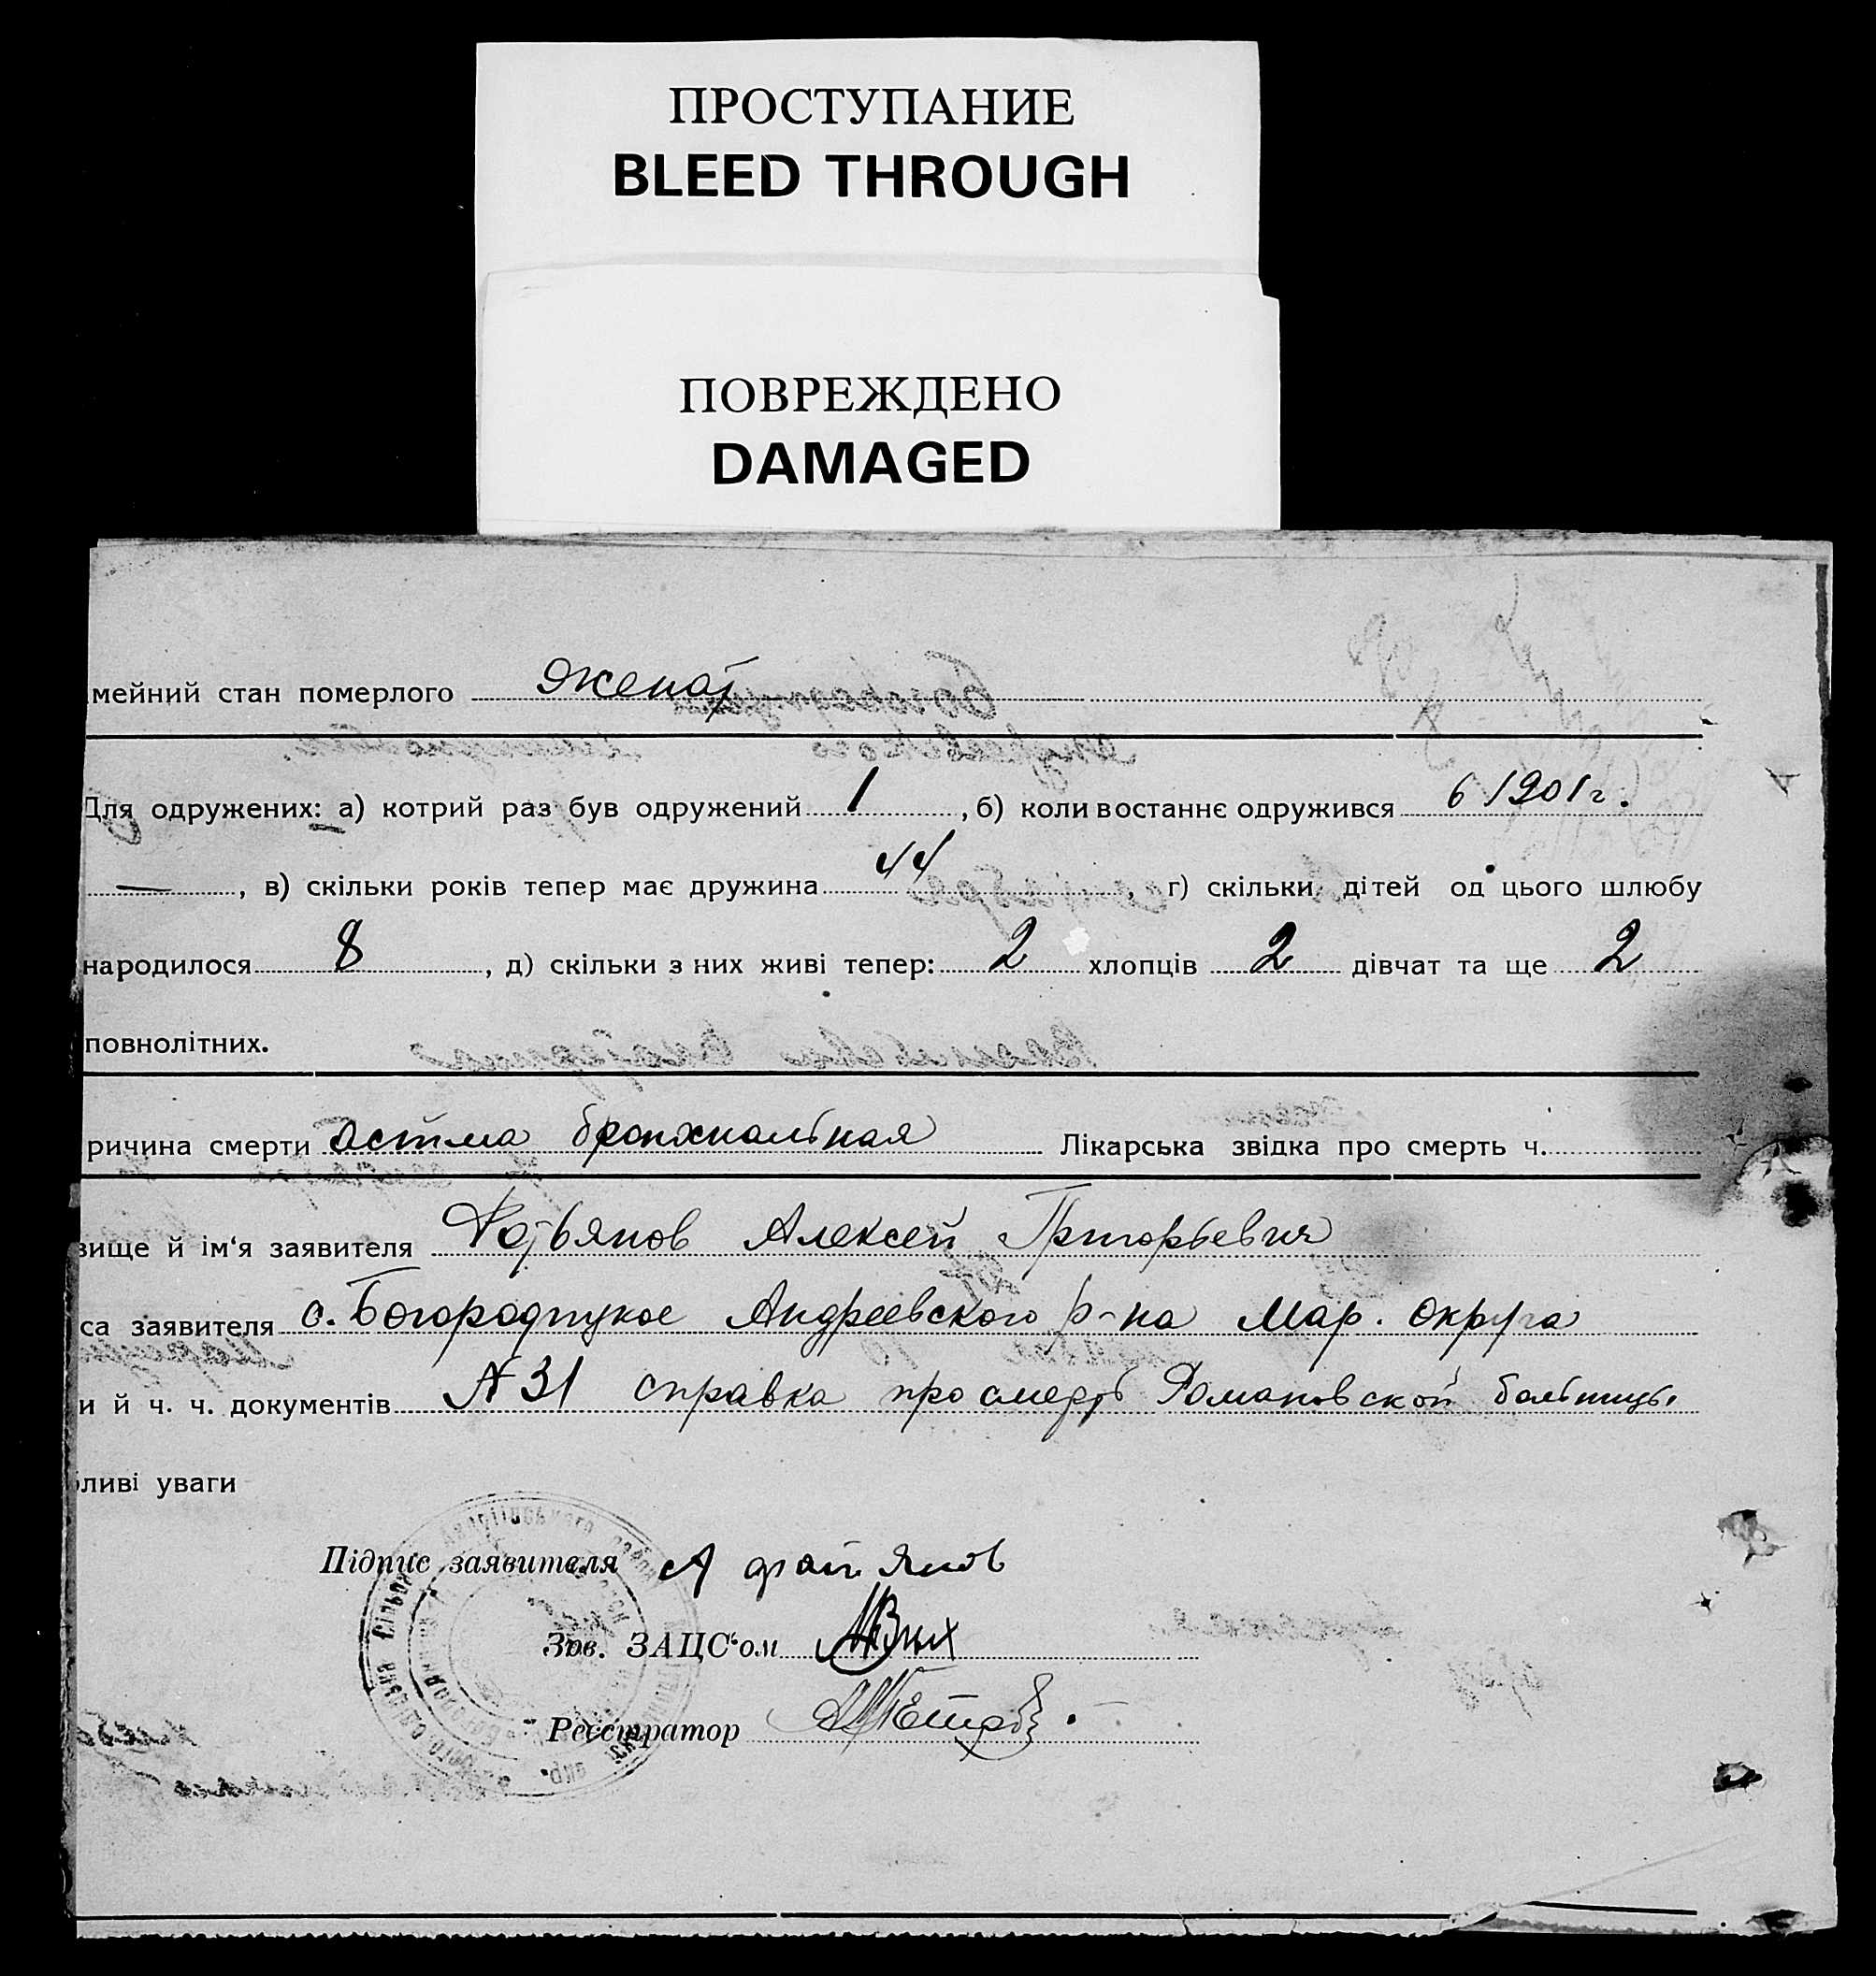 ПРОСТУПАНИЕ
BLEED THROUGH
ПОВРЕЖДЕНО
DAMAGED
мейний стан померлого женат
Для одружених: а) котрий раз був одружений 1, б) коли востаннє одружився в 1901 г.
—, в) скільки років тепер має дружина 44, г) скільки дітей од цього шлюбу
народилося 8, д) скільки з них живі тепер: 2 хлопців 2 дівчат та ще 2
повнолітних.
ричина смерти Астма бронхиальная Лікарська звідка про смерть ч.
вище й ім'я заявителя Фотьянов Алексей Григорьевич
са заявителя с. Богородицкое Андреевского р-на Мар. округа
и й ч. ч. документів № 31 справка про смерть Романовской больницы
ливі уваги
Підпис заявителя А фатиянов
Зав. ЗАЦС'ом
Реєстратор